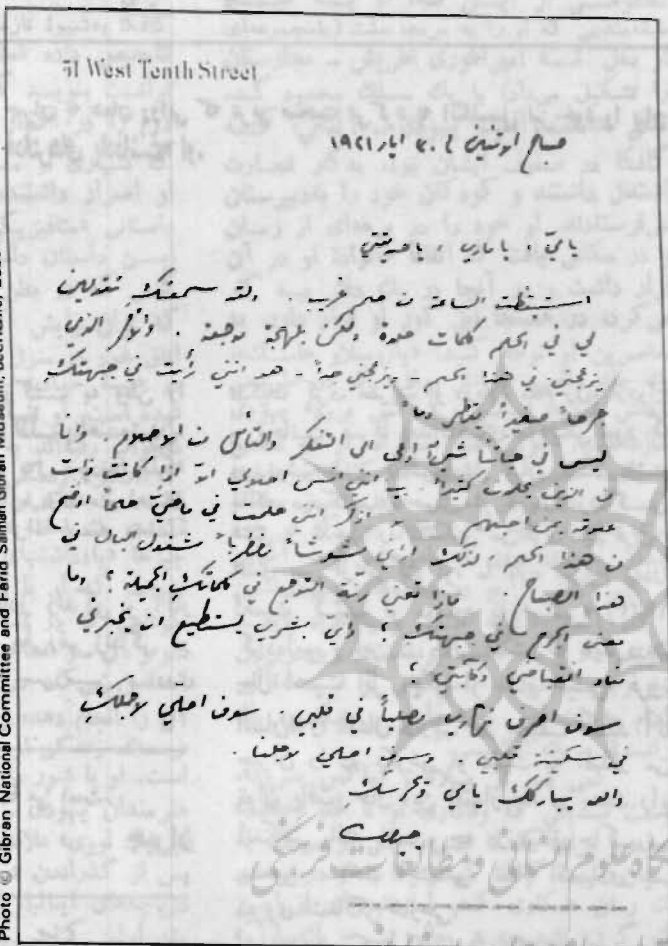 51 West Tenth Street
صباح الاثنين في ٣٠ ايار ١٩٢١
يا ميّ، يا ماري، يا صديقتي
استيقظت الساعة من حلم غريب. ولقد سمعتك تقولين
لي في الحلم كلمات حلوة ولكن بلهجة موجعة. والأمر الذي
يزعجني في هذا الحلم – ويزعجني جداً – هو انني رأيت في جبهتكِ
جرحاً صغيراً يقطر دماً.
ليس في حياتنا شيءٌ ادعى الى التفكر والتأمل من الاحلام. وانا
من الذين يحلمون كثيراً بيد انني انسى احلامي الا اذا كانت ذات
علاقة بمن احبهم اذكر انني حلمت في ماضيّ حلماً اوضح
من هذا الحلم، لذلك اراني مشوشاً مضطرباً مشغول البال في
هذا الصباح. ماذا تعني رنّة التوجع في كلماتكِ الجميلة؟ وما
معنى الجرح في جبهتك؟ وايّ بشري يستطيع ان يخبرني
مفاد انقباضي وكآبتي؟
سوف اصرف نهاري مصلياً في قلبي. سوف اصلي لاجلكِ
في سكينة قلبي. وسوف اصلي لاجلنا.
والله يباركك يا مي ويحرسكِ
جبران
Photo © Gibran National Committee and Farid Salman Gibran Museum,
گاه علوم انسانی و مطالعات فرهنگی